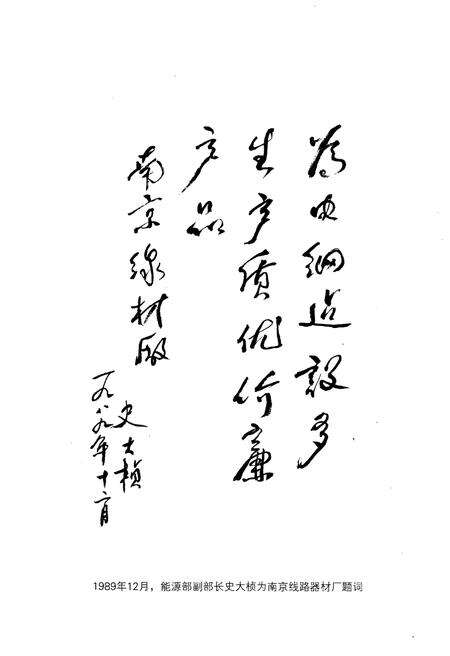 为电网建设多
生产质优价廉
产品
南京線材厰
史大桢
一九八九年十二月
1989年12月，能源部副部长史大桢为南京线路器材厂题词